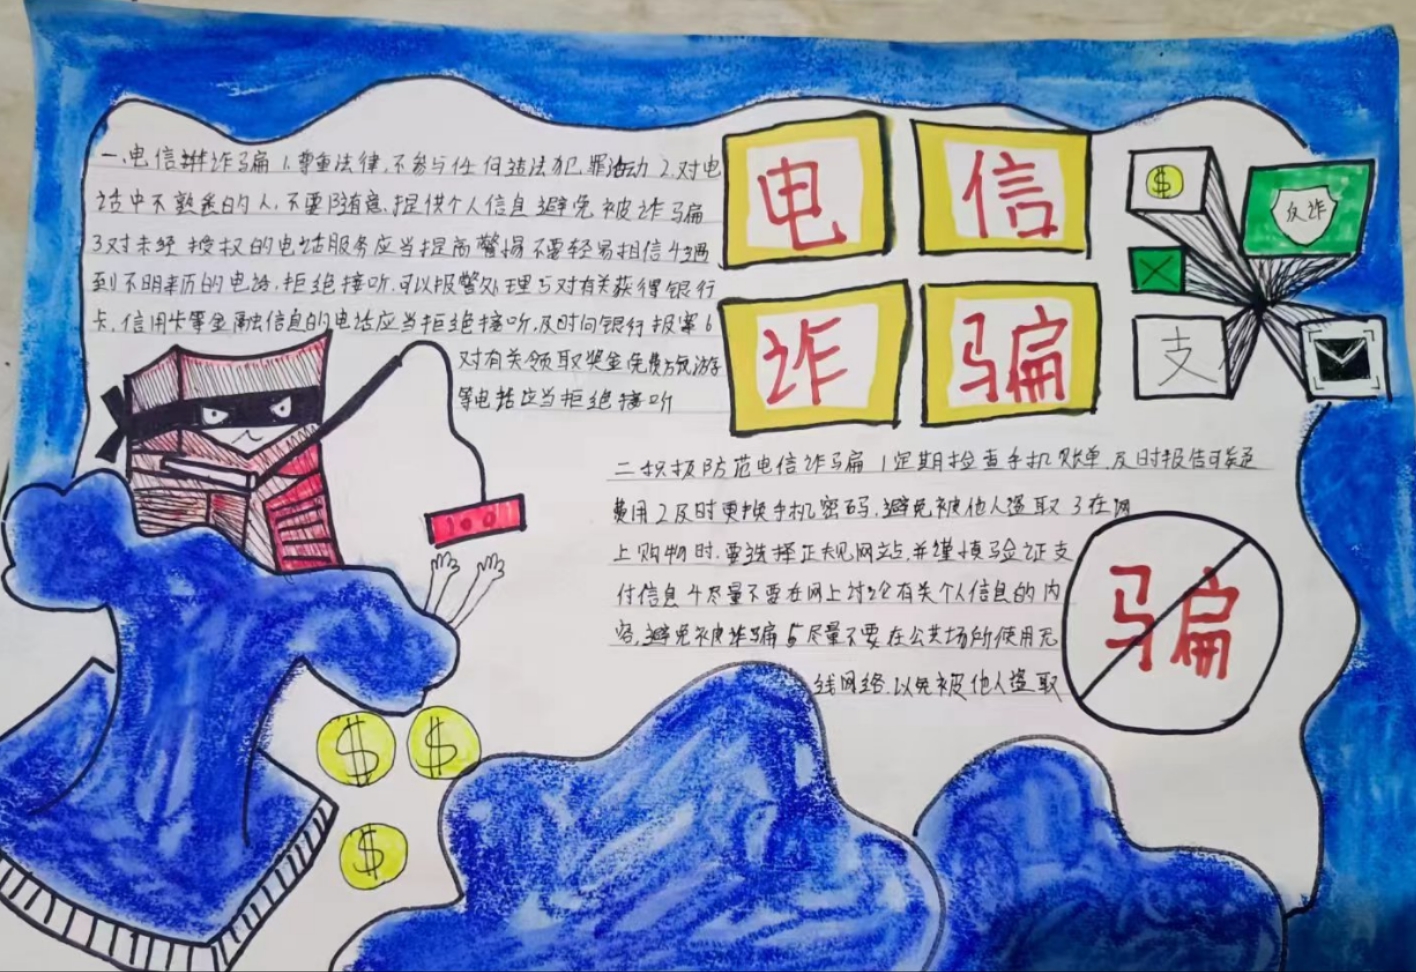 一、电信诈骗 1.尊重法律,不参与任何违法犯罪活动 2.对电
话中不熟悉的人,不要随意提供个人信息避免被诈骗
3对未经授权的电话服务应当提高警惕不要轻易相信4遇
到不明来历的电话,拒绝接听,可以报警处理5对有关获得银行
卡、信用卡等金融信息的电话应当拒绝接听,及时向银行报案6
对有关领取奖金免费旅游
等电话应当拒绝接听
电信
诈骗
$
反诈
支
100
二积极防范电信诈骗 1定期检查手机账单,及时报告可疑
费用2及时更换手机密码,避免被他人盗取3在网
上购物时,要选择正规网站,并谨慎验证支
付信息4尽量不要在网上讨论有关个人信息的内
容,避免被诈骗5尽量不要在公共场所使用无
线网络,以免被他人盗取
骗
$ $
$